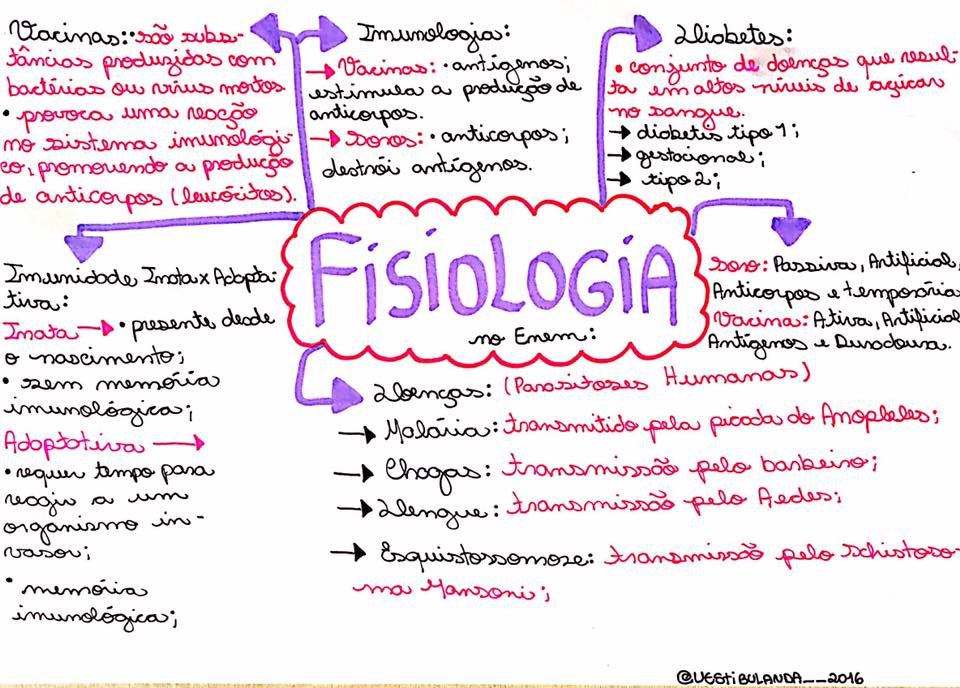 Vacinas: • são subs-
tâncias produzidas com
bactérias ou vírus mortos
• provoca uma reação
no sistema imunológi-
co, promovendo a produção
de anticorpos (leucócitos).
Imunologia:
→ Vacinas: • antígenos;
estimula a produção de
anticorpos.
→ Soros: • anticorpos;
destrói antígenos.
Diabetes:
• conjunto de doenças que resul-
ta em altos níveis de açúcar
no sangue.
→ diabetis tipo 1;
→ gestacional;
→ tipo 2;
FISIOLOGIA
no Enem:
Imunidade Inata x Adapta-
tiva:
Inata → • presente desde
o nascimento;
• sem memória
imunológica;
Adaptativa →
• requer tempo para
reagir a um
organismo in-
vasor;
• memória
imunológica;
Soro: Passiva, Artificial,
Anticorpos e temporária
Vacina: Ativa, Artificial
Antígenos e Duradoura.
Doenças: (Parasitoses Humanas)
→ Malária: transmitido pela picada do Anopleles;
→ Chagas: transmissão pelo barbeiro;
→ Dengue: transmissão pelo Aedes;
→ Esquistossomose: transmissão pelo Schistoso-
ma Mansoni;
@VESTIBULANDA__2016